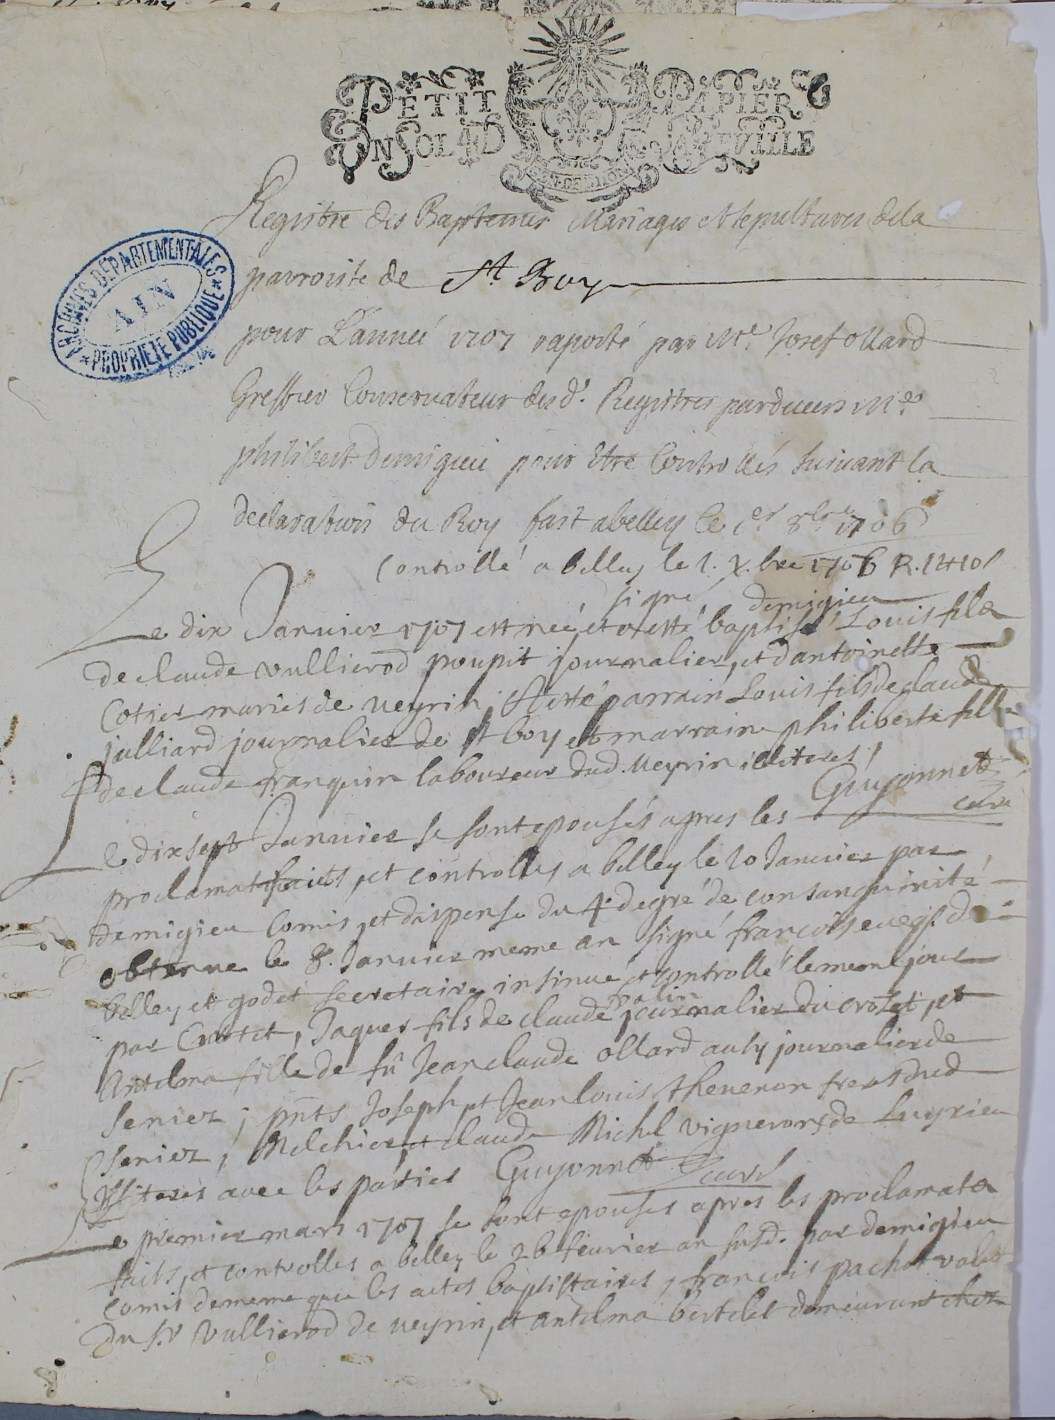 PETIT PAPIER
UN SOL 4 D LA FEUILLE
GEN. DE DIJON
ARCHIVES DEPARTEMENTALES
AIN
PROPRIETE PUBLIQUE
Registre des Baptemes Mariages et sepultures dela
parroiste de St Boy
pour L'année 1707 raporté par Mr. Josef ollard
Greffier Conservateur des d. Registres pardevers Mr
philibert Demigieu pour Etre Controllés suivant la
declaration du Roy fait a belley le 1er 8bre 1706
Controllé a belley le 1. X.bre 1706 R.
signé demigieu
Le dix Janvier 1707 est né et a esté baptisé Louis fils
de claude vullierod poupit journalier, et d'antoinette
Cotier mariés de veyrin, a esté parrain Louis fils de claude
julliard journalier de st boy et marraine philiberte fille
de claude franquin laboureur dud. veyrin illiterés
Guyonnet
curé
Le dixsept Janvier se sont epousés apres les
proclamat faites, et controllés a belley le 10 Janvier par
demigieu Comis, et dispense du 4e degré de consanguinité
obtenue le 8. Janvier meme an signé francois eveq. de
belley, et godet secretaire, insinué et controllé le meme jour
par Curtet, Jaques fils de claude journalier du crozet, et
Antelma fille de fû Jean claude ollard aussy journalier de
seniez; pnts Joseph et Jean louis thevenon freres dud
seniez, Melchier, et claude Michel vignerons de Luyrieu
illiterés avec les parties Guyonnet curé
Le premier mars 1707 se sont epousés apres les proclamats
faits, et controllés a belley le 26 fevrier an susd. par demigieu
comis dememe que les actes baptistaires, francois pachot valet
du sr vullierod de veyrin, et antelma bertelet demeurant chez